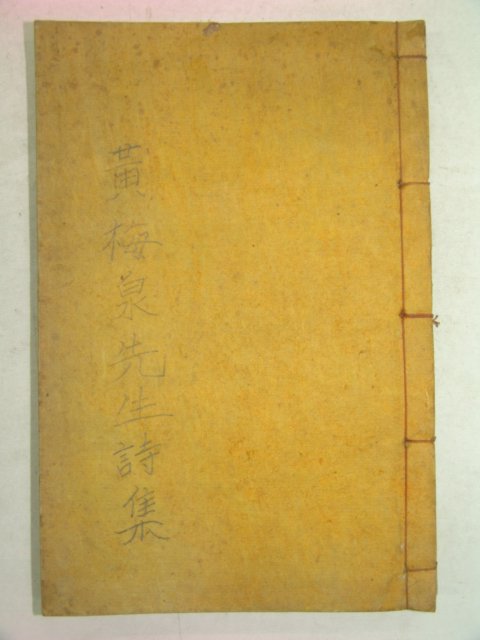 黃梅泉先生詩集